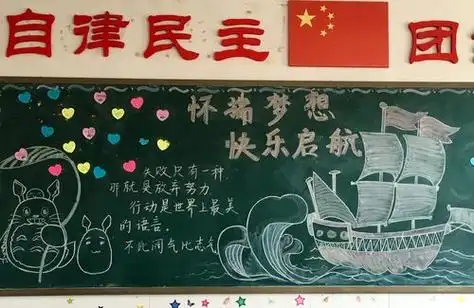 自律民主 团
怀揣梦想
快乐启航
失败只有一种，
那就是放弃努力
行动是世界上最美
的语言。
不比阔气比志气